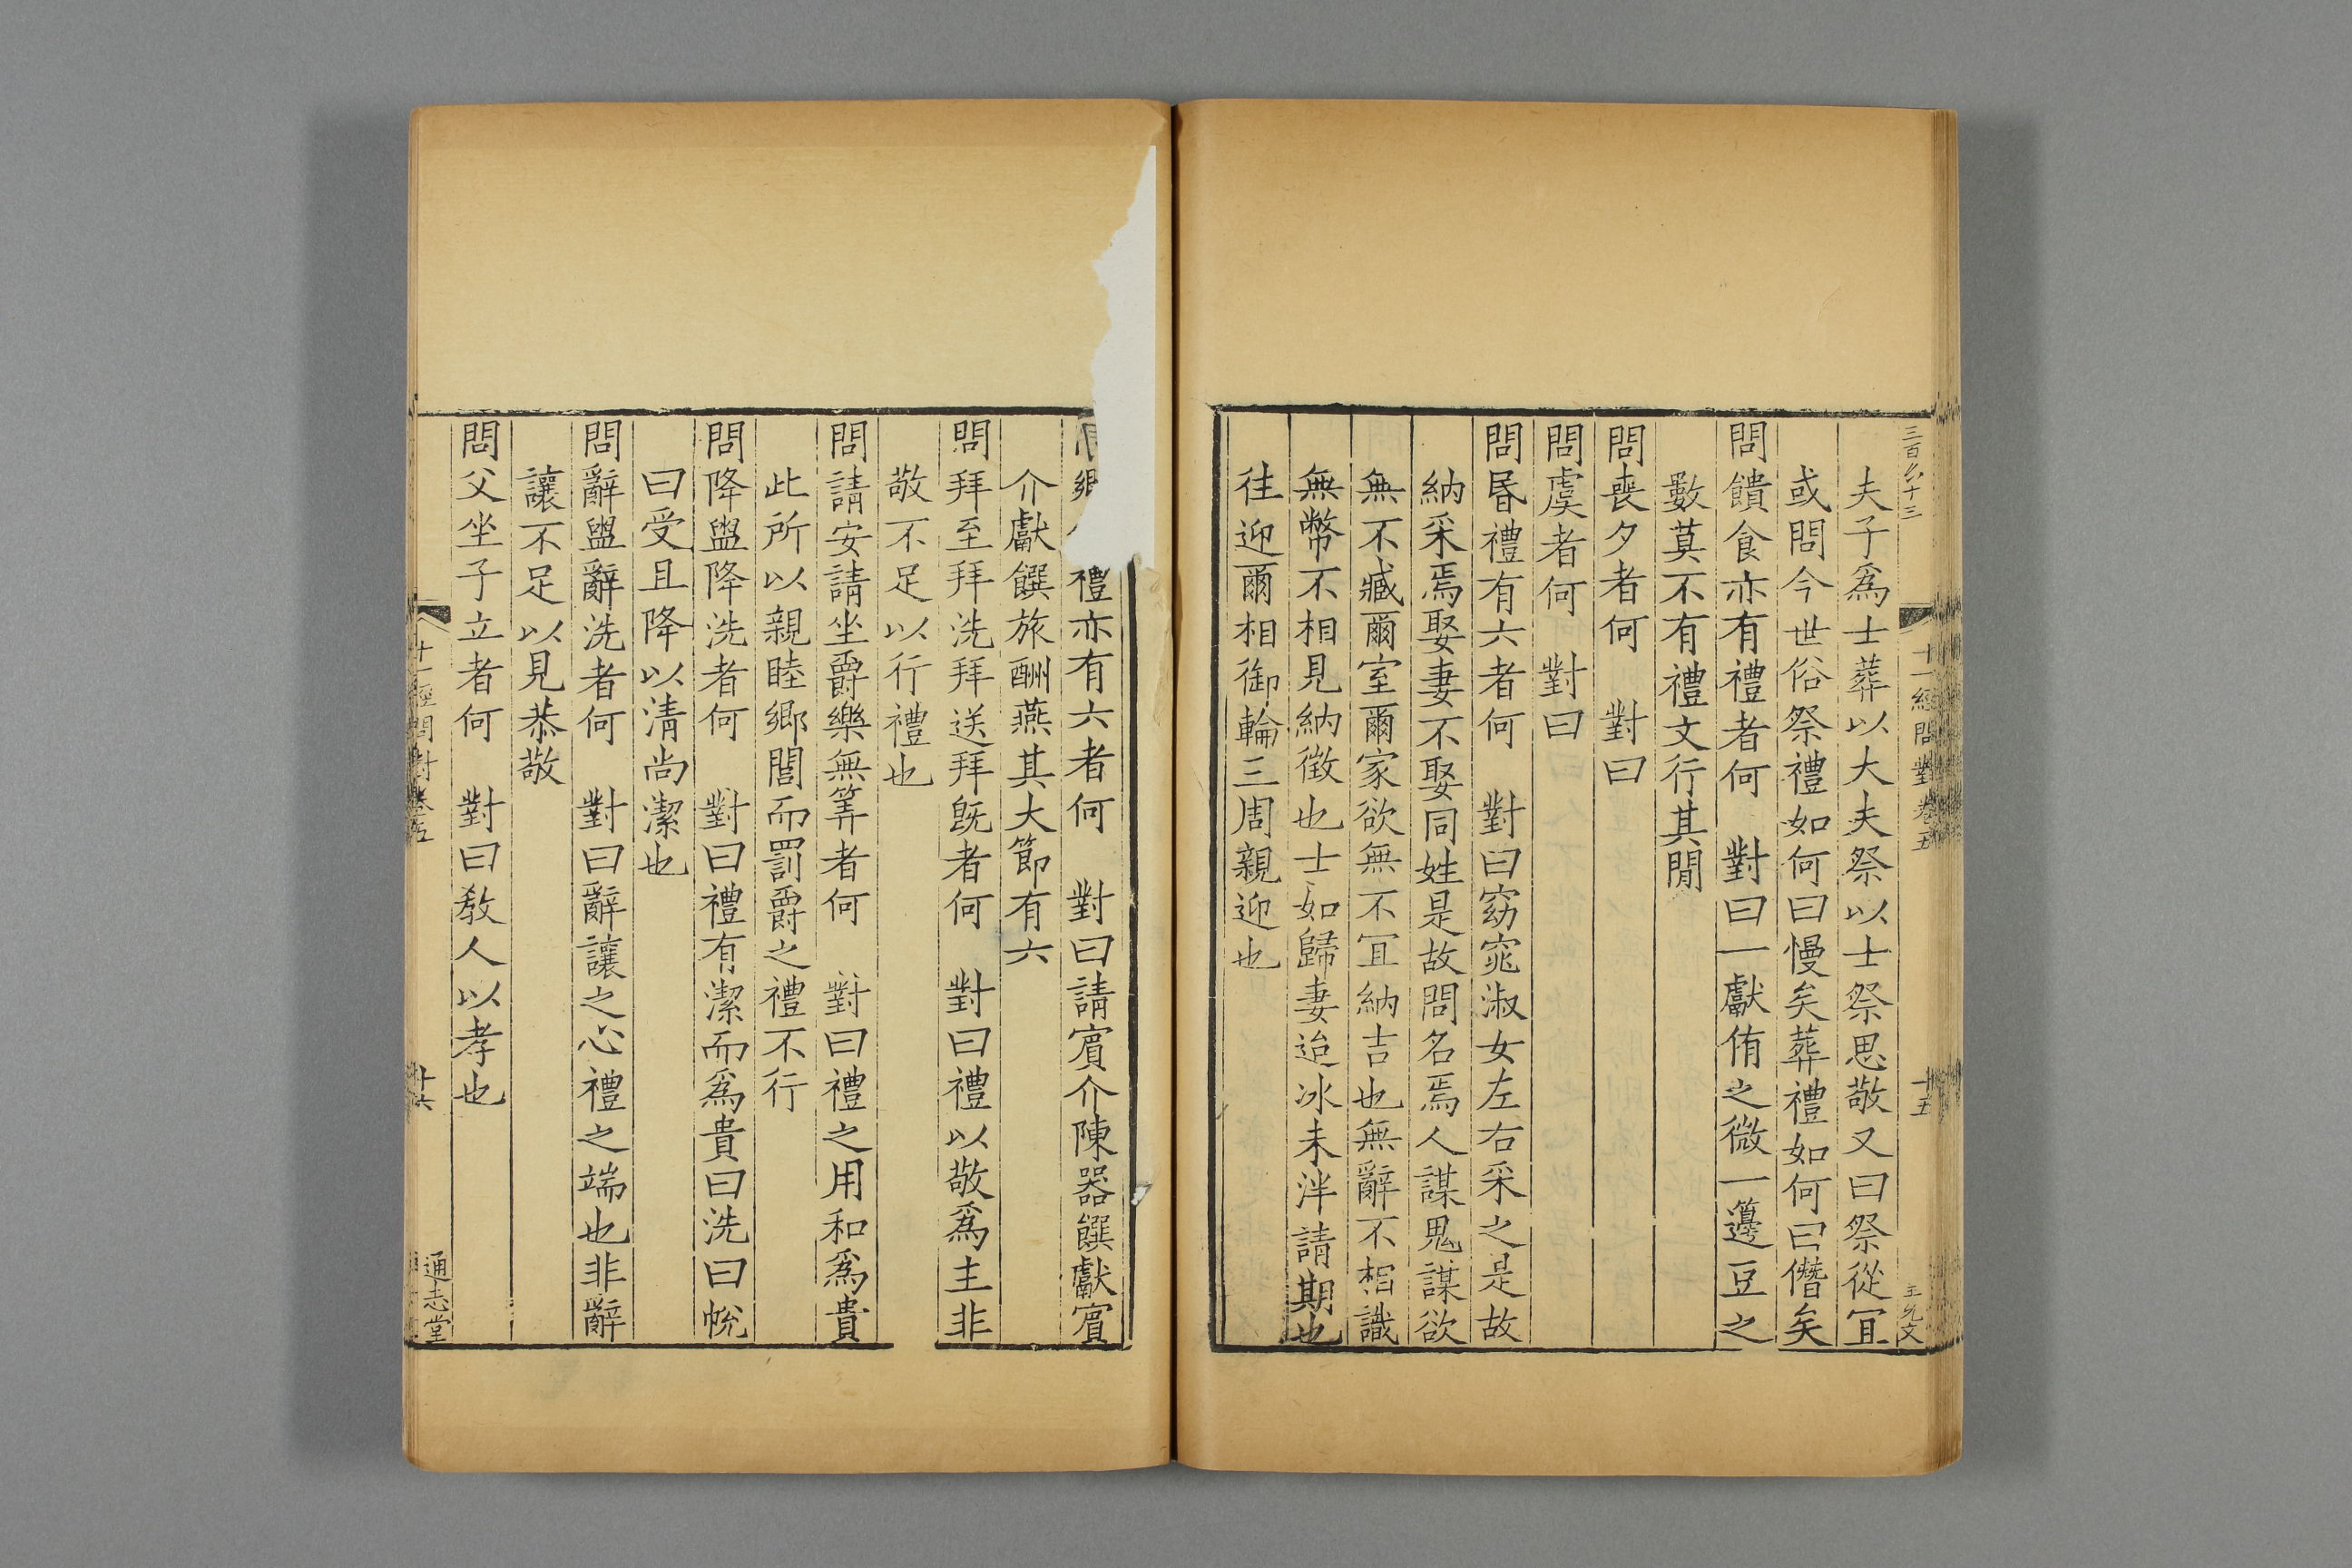 十一經問對卷五
十五
夫子爲士葬以大夫祭以士祭思敬又曰祭從宜
或問今世俗祭禮如何曰慢矣葬禮如何曰僭矣
問饋食亦有禮者何 對曰一獻侑之微一籩豆之
數莫不有禮文行其閒
問喪夕者何 對曰
問虞者何 對曰
問昬禮有六者何 對曰窈窕淑女左右采之是故
納采焉娶妻不娶同姓是故問名焉人謀鬼謀欲
無不臧爾室爾家欲無不宜納吉也無辭不相識
無幣不相見納徵也士如歸妻迨冰未泮請期也
往迎爾相御輪三周親迎也
禮亦有六者何 對曰請賓介陳器饌獻賓
介獻饌旅酬燕其大節有六
問拜至拜洗拜送拜旣者何 對曰禮以敬爲主非
敬不足以行禮也
問請安請坐爵樂無筭者何 對曰禮之用和爲貴
此所以親睦鄉閭而罰爵之禮不行
問降盥降洗者何 對曰禮有潔而爲貴曰洗曰帨
曰受且降以清尚潔也
問辭盥辭洗者何 對曰辭讓之心禮之端也非辭
讓不足以見恭敬
問父坐子立者何 對曰教人以孝也
十一經問對卷五
十六
通志堂